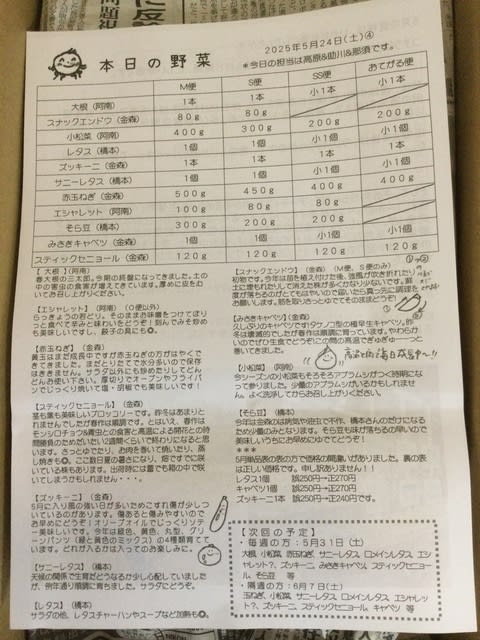 本日の野菜
2025年5月24日(土)④
*今日の担当は高原&助川&那須です。
M便 S便 SS便 おてがる便
大根(阿南) 1本 1本 小1本
スナックエンドウ(金森) 80g 80g
小松菜(阿南) 400g 300g 200g 200g
レタス(橋本) 1個 1個 小1個 小1個
ズッキーニ(金森) 1本 1本 小1本
サニーレタス(橋本) 1個 1個 小1個 小1個
赤玉ねぎ(金森) 500g 450g 400g 400g
エシャレット(阿南) 100g 80g 80g
そら豆(橋本) 300g 200g 200g
みさきキャベツ(金森) 1個 1個 小1個 小1個
スティックセニョール(金森) 120g 120g 120g 120g
【大根】(阿南)
春大根の三太郎。今期の終盤になってきました。土の
中の害虫の食害が増えてきています。厚めに皮をむ
いてお召し上がりください。
【エシャレット】(阿南)(○便以外)
らっきょうの若どり。そのままお味噌をつけてぽり
っと食べて辛みと味わいをどうぞ!刻んでみそ炒め
も美味しいですし、餃子の具にも◎。
【赤玉ねぎ】(金森)
黄玉はまだ成長中ですが赤玉ねぎの方がはやくで
きてきました。まだとりたてで水分多いので保存
はききません。サラダ以外にも炒めたりしてどん
どんお使い下さい。厚切りでオーブンやフライパ
ンでじっくり焼いて塩・胡椒でも美味しいです!
【スティックセニョール】(金森)
茎も葉も美味しいブロッコリーです。昨冬はあまりと
れませんでしたが春作は順調です。とはいえ、春作は
モンシロチョウ&青虫との食害と高温による開花との時
間勝負のためだいたい2週間くらいで終わりになると思
います。さっとゆでたり、お肉を巻いて焼いたり、蒸
し焼きも◎。ここ数日夏の暑さになり、畑ですでに咲
いている株もあります。出荷時には蕾でも箱の中で咲
いてしまうかもしれません・・・。
【ズッキーニ】(金森)
5月に入り風の強い日が多いためこすれ傷が少しつ
いているのがあります。傷あると傷みやすいので
お早めにどうぞ!オリーブオイルでじっくりソテ
ー美味しいです。今年は緑色、黄色、丸型、グリ
ーンパンツ(緑と黄色のミックス)の4種類育てて
います。どれが入るかは入ってのお楽しみに。
【サニーレタス】(橋本)
天候の関係で生育だどうなるか少し心配していました
が、例年通り順調に育ちました。サラダにどうぞ。
【レタス】(橋本)
サラダの他、レタスチャーハンやスープなど加熱も◎。
【スナックエンドウ】(金森)(M便、S便のみ)
初物です。今年は苗を植え付けた後、強風が吹き折れたり
土に埋もれたりして消えた株が多くかなり少ないです。鮮
度が落ちるのがとてもはやいので届いたら真っ先に調理を
お願いします。筋を取っさっとゆでてそのままどうぞ!
【みさきキャベツ】(金森)
久しぶりのキャベツですタケノコ型の極早生キャベツ。昨
冬は壊滅的でしたが春作は順調に育っています。やわらか
いのでぜひ生食でどうぞこの間の高温でぎゅぎゅーっと
巻いてきました。
【小松菜】(阿南)
今シーズンの小松菜もそろそろアブラムシがつく時期にな
って参りました。少量のアブラムシがいるかもしれませ
ん。よく洗浄してからお召し上がりください。
【そら豆】(橋本)
今年は金森は病気や虫害で不作、橋本さんのだけになる
ため少量のみとなります。そら豆も味が落ちるの早いので
美味しいうちにお早めにゆでてどうぞ!
***
5月単品表の表の方で価格の間違いがありました。裏の表
は正しい価格です。申し訳ありません!!
レタス1個 誤250円→正270円
キャベツ1個 誤250円→正270円
ズッキーニ1本 誤250円→正240円です。
【次回の予定】
毎週の方:5月31日(土)
大根、小松菜、赤玉ねぎ、サニーレタス、ロメインレタス、エシャ
レット?、ズッキーニ、みさきキャベツ、スティックセニョー
ル、そら豆 等
・隔週の方:6月7日(土)
玉ねぎ、小松菜、サニーレタス、ロメインレタス、エシャレッ
ト?、ズッキーニ、スティックセニョール、キャベツ 等